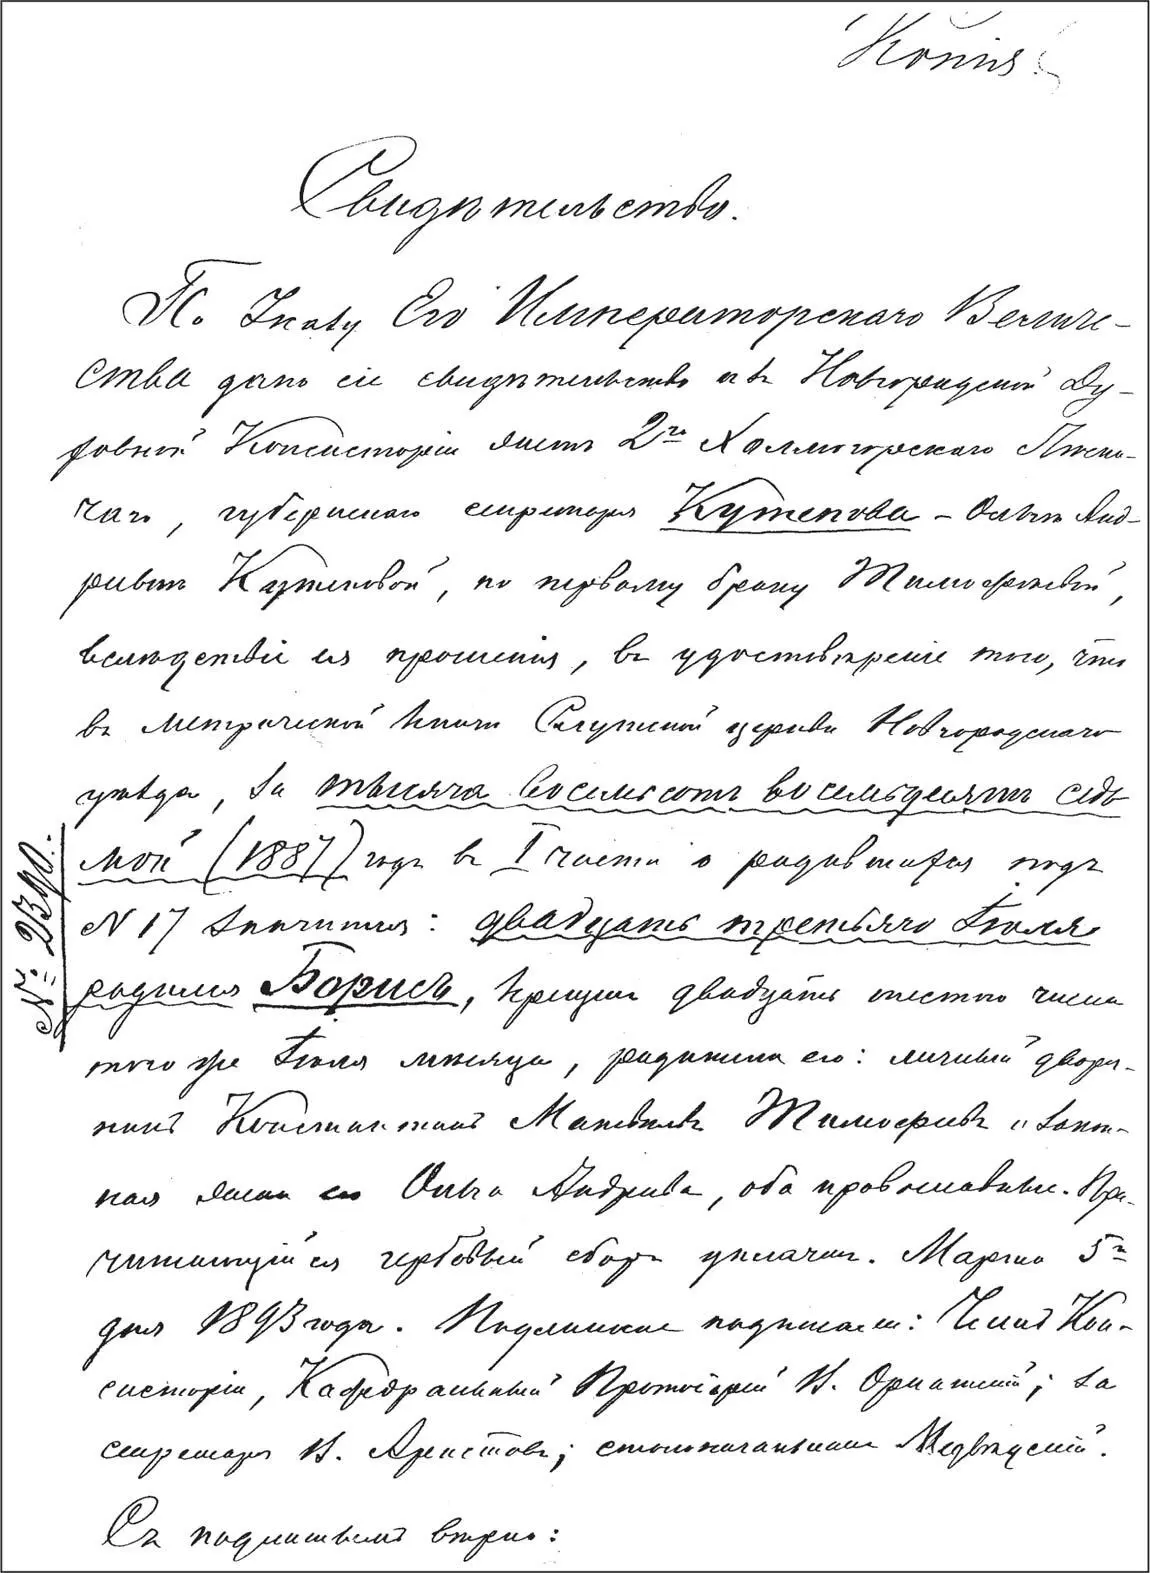 Копія.
Свидѣтельство.
По Указу Его Императорскаго Величе-
ства дано сіе свидѣтельство изъ Новгородской Ду-
ховной Консисторіи женѣ 2го Холмогорскаго Лѣсни-
чаго, губернскаго секретаря Кутепова - Ольгѣ Анд-
реевнѣ Кутеповой, по первому браку Тимофеевой,
вслѣдствіе ея прошенія, въ удостовѣреніе того, что
въ метрической книгѣ церкви Новгородскаго
уѣзда, за тысяча восемьсотъ восемьдесятъ седь
мой (1887) годъ въ I части о родившихся подъ
N 17 значится: двадцать третьяго Іюля
родился Борисъ, крещенъ двадцать шестого числа
того же Іюля мѣсяца, родители его: личный дворя-
нинъ Константинъ Матвѣевъ Тимофеевъ и закон-
ная жена его Ольга Андреева, оба православные. При-
читающійся гербовый сборъ уплаченъ. Марта 5го
дня 1893 года. Подлинное подписали: Членъ Кон-
систоріи, Кафедральный Протоіерей В. Орнатскій; за
секретаря В. Аристовъ; столоначальникъ Медвѣдскій.
Съ подлиннымъ вѣрно:
№: 2390.